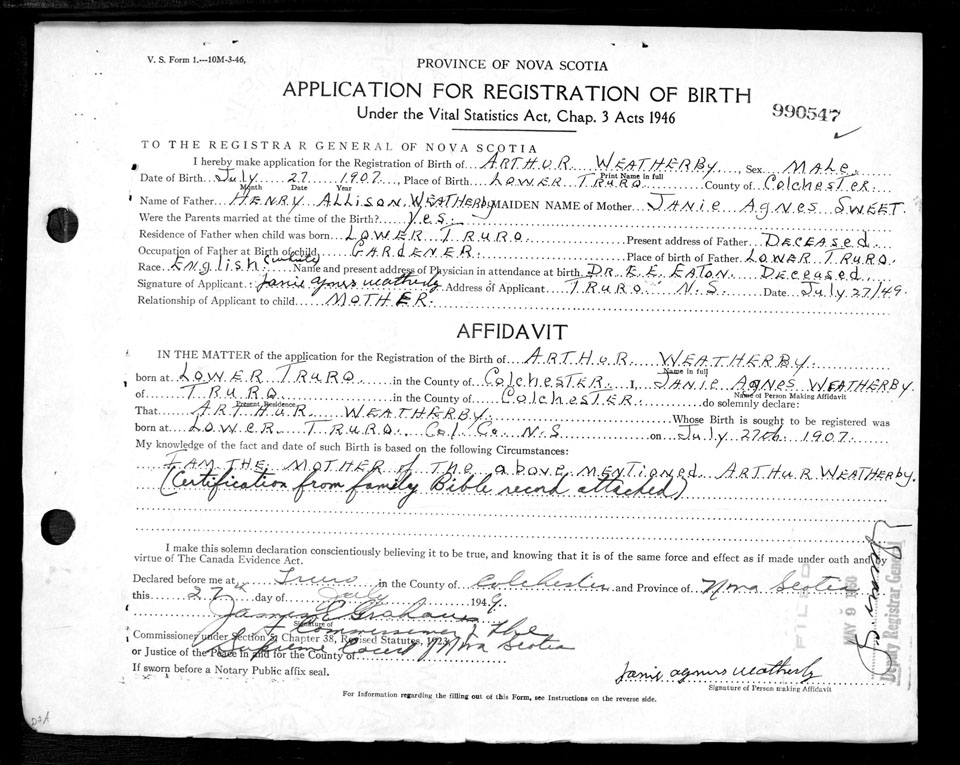 V. S. Form 1.---10M-3-46,
PROVINCE OF NOVA SCOTIA
APPLICATION FOR REGISTRATION OF BIRTH
Under the Vital Statistics Act, Chap. 3 Acts 1946
990547
TO THE REGISTRAR GENERAL OF NOVA SCOTIA
I hereby make application for the Registration of Birth of ARTHUR WEATHERBY, Sex MALE
Print Name in full
Date of Birth July 27 1907, Place of Birth LOWER TRURO County of COLCHESTER.
Month Date Year
Name of Father HENRY ALLISON WEATHERBY MAIDEN NAME of Mother JANIE AGNES SWEET.
Were the Parents married at the time of the Birth? Yes.
Residence of Father when child was born LOWER TRURO Present address of Father DECEASED
Occupation of Father at Birth of child GARDENER. Place of birth of Father LOWER TRURO.
Race ENGLISH (white) Name and present address of Physician in attendance at birth DR. E. E. EATON DECEASED
Signature of Applicant: Janie Agness Weatherby Address of Applicant TRURO N.S. Date July 27/49
Relationship of Applicant to child MOTHER.
AFFIDAVIT
IN THE MATTER of the application for the Registration of the Birth of ARTHUR WEATHERBY.
Name in full
born at LOWER TRURO in the County of COLCHESTER. I, JANIE AGNES WEATHERBY.
Name of Person Making Affidavit
of TRURO in the County of COLCHESTER do solemnly declare:
Present Residence
That ARTHUR WEATHERBY Whose Birth is sought to be registered was
born at LOWER TRURO, Col. Co. N.S on July 27th 1907.
My knowledge of the fact and date of such Birth is based on the following Circumstances:
I AM THE MOTHER of The above MENTIONED ARTHUR WEATHERBY.
(Certification from family Bible record attached)
I make this solemn declaration conscientiously believing it to be true, and knowing that it is of the same force and effect as if made under oath and by
virtue of The Canada Evidence Act.
Declared before me at Truro in the County of Colchester and Province of Nova Scotia
this 27 day of July 1949.
James E Graham
Signature of
A Commissioner of the
Commissioner under Section 5, Chapter 38, Revised Statutes, 1923
Supreme Court of Nova Scotia
or Justice of the Peace in and for the County of
If sworn before a Notary Public affix seal.
Janie Agness Weatherby
Signature of Person making Affidavit
For Information regarding the filling out of this Form, see Instructions on the reverse side.
FILED
MAY 9 1950
Deputy Registrar General